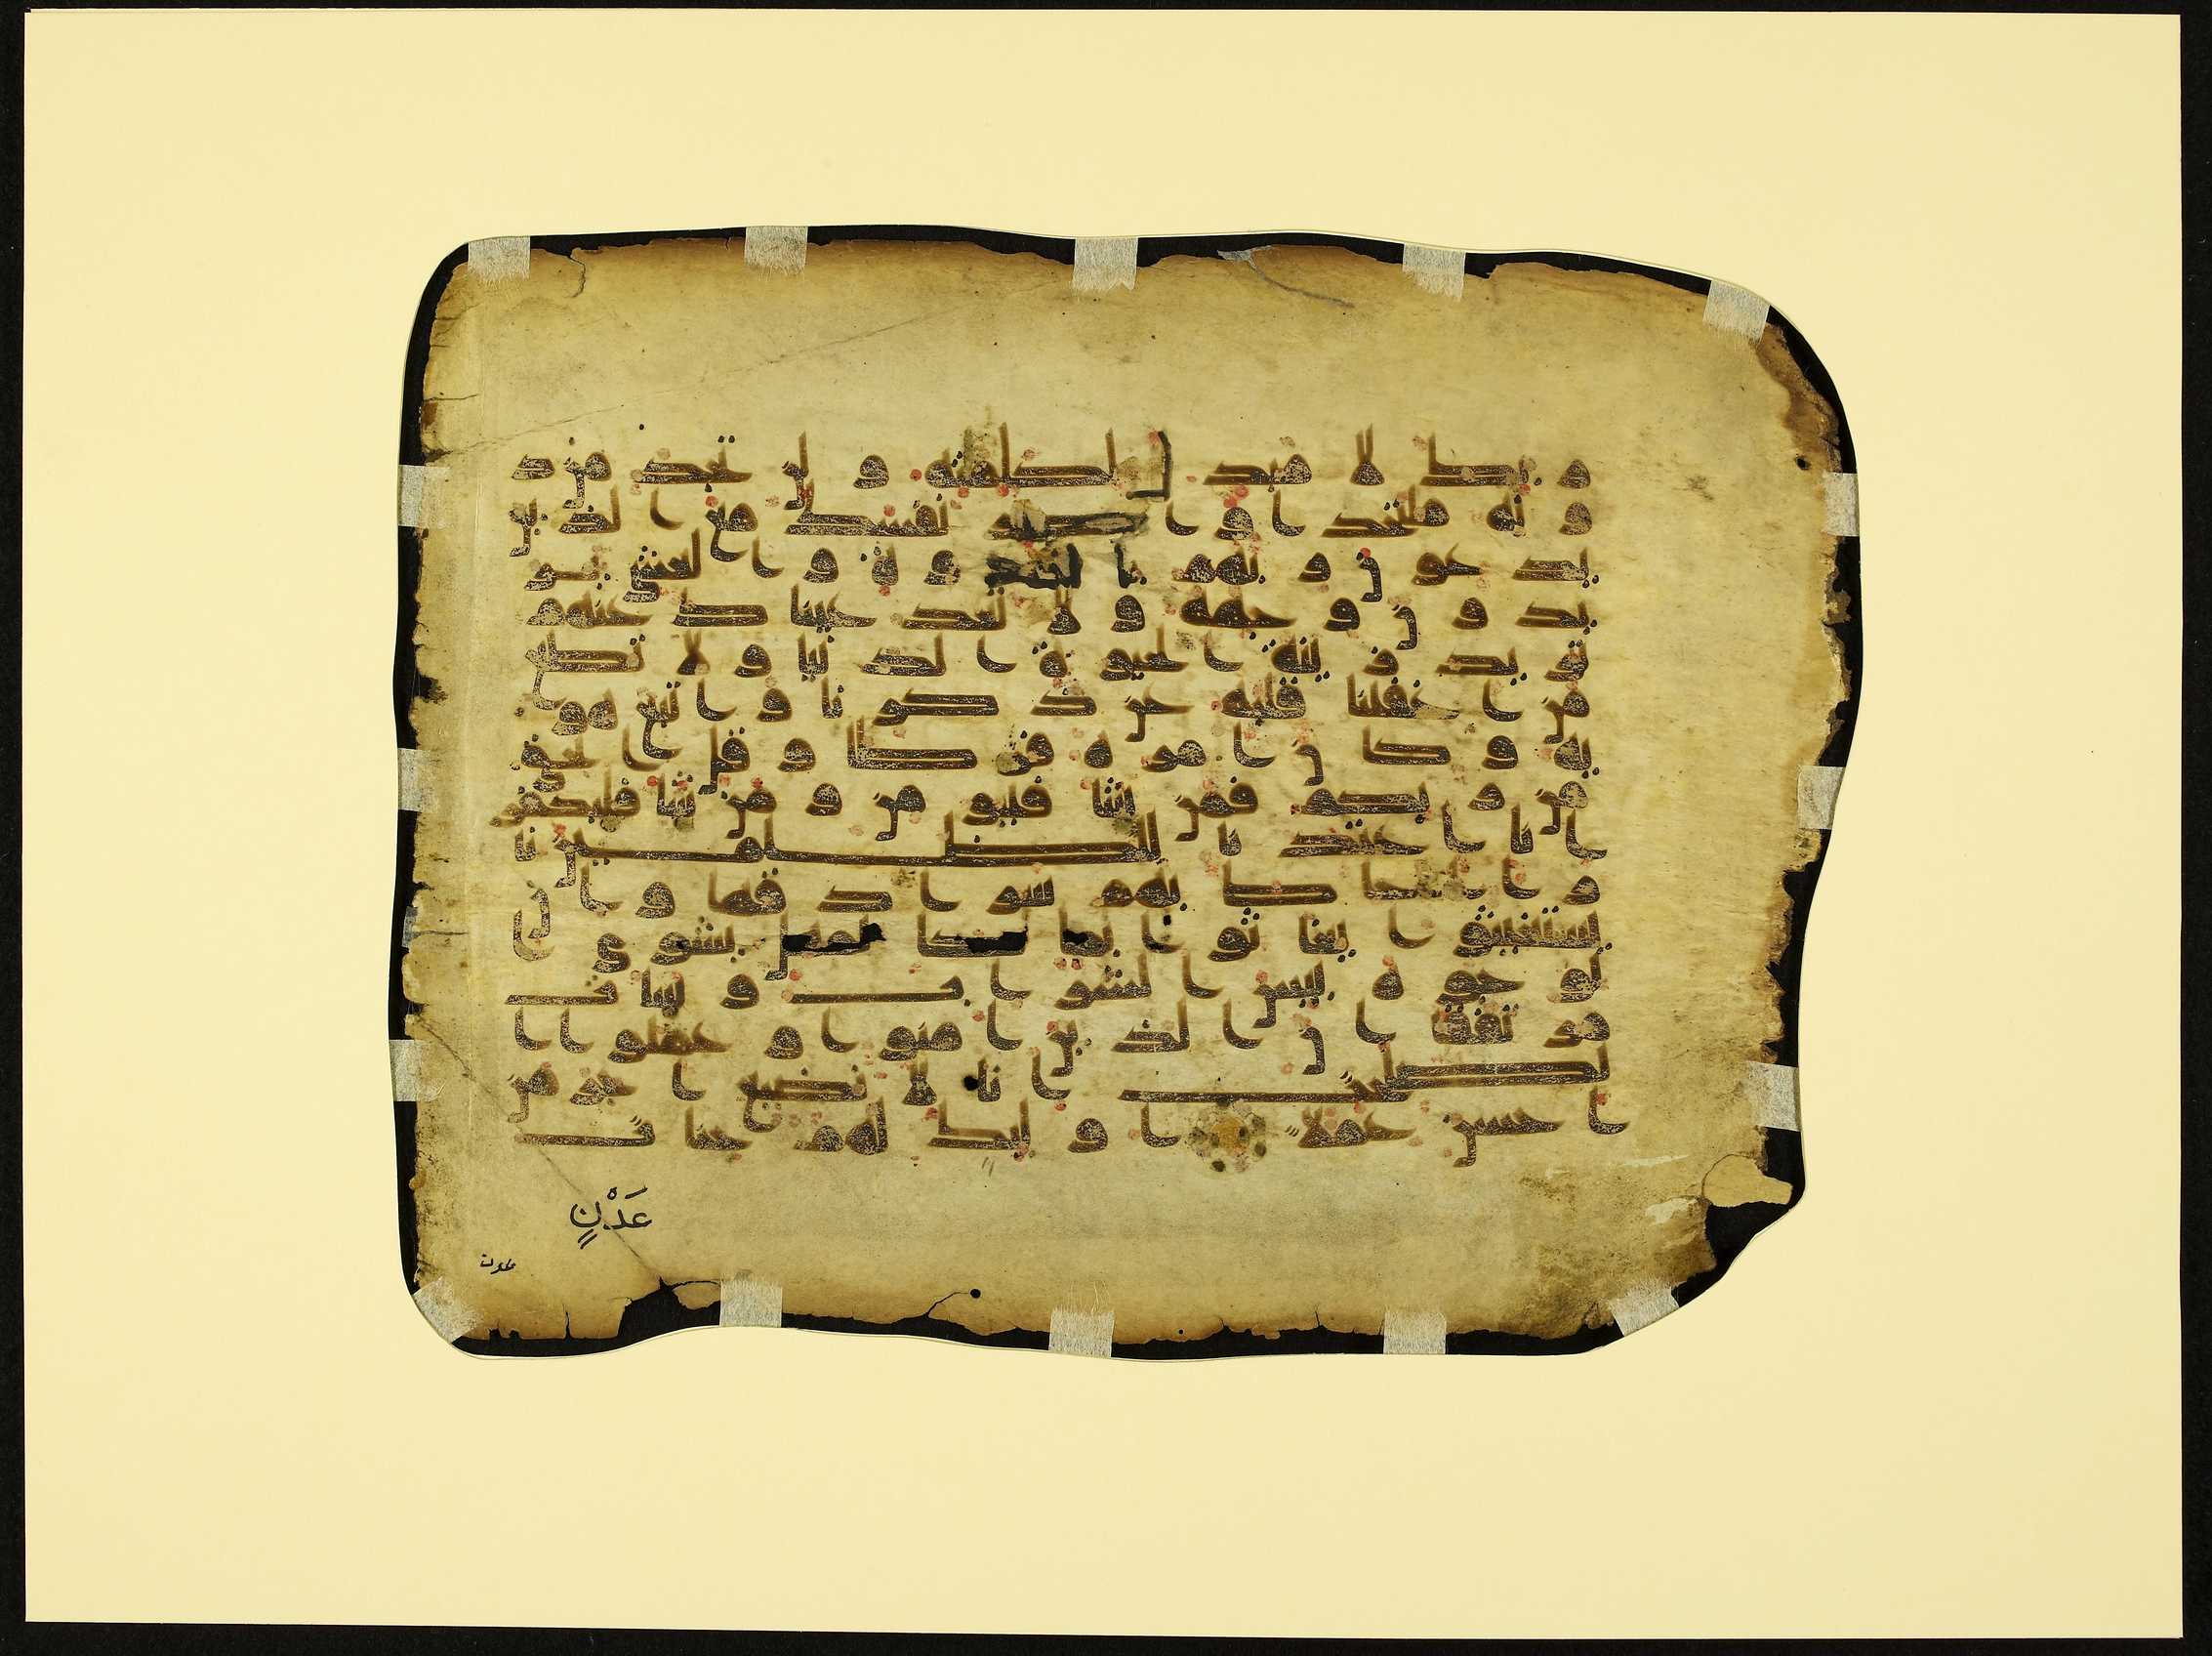 ربك لا مبدل لكلمته ولن تجد من د
ونه ملتحدا واصبر نفسك مع الذين
يدعون ربهم بالغدوة والعشي ير
يدون وجهه ولا تعد عينا ك عنهم
تريد زينة الحيوة الدنيا ولا تطع
من اغفلنا قلبه عن ذكرنا واتبع هو
يه وكان امره فرطا وقل الحق
من ربكم فمن شا فليومن ومن شا فليكفر
انا اعتدنا للظلمين نا
را احاط بهم سرادقها وان
يستغيثوا يغاثوا بما كالمهل يشوي ا
لوجوه بيس الشراب وسات
مرتفقا ان الذين امنوا وعملوا ا
لصلحت انا لا نضيع اجر من
احسن عملا اوليك لهم جنات
عَدْنٍ